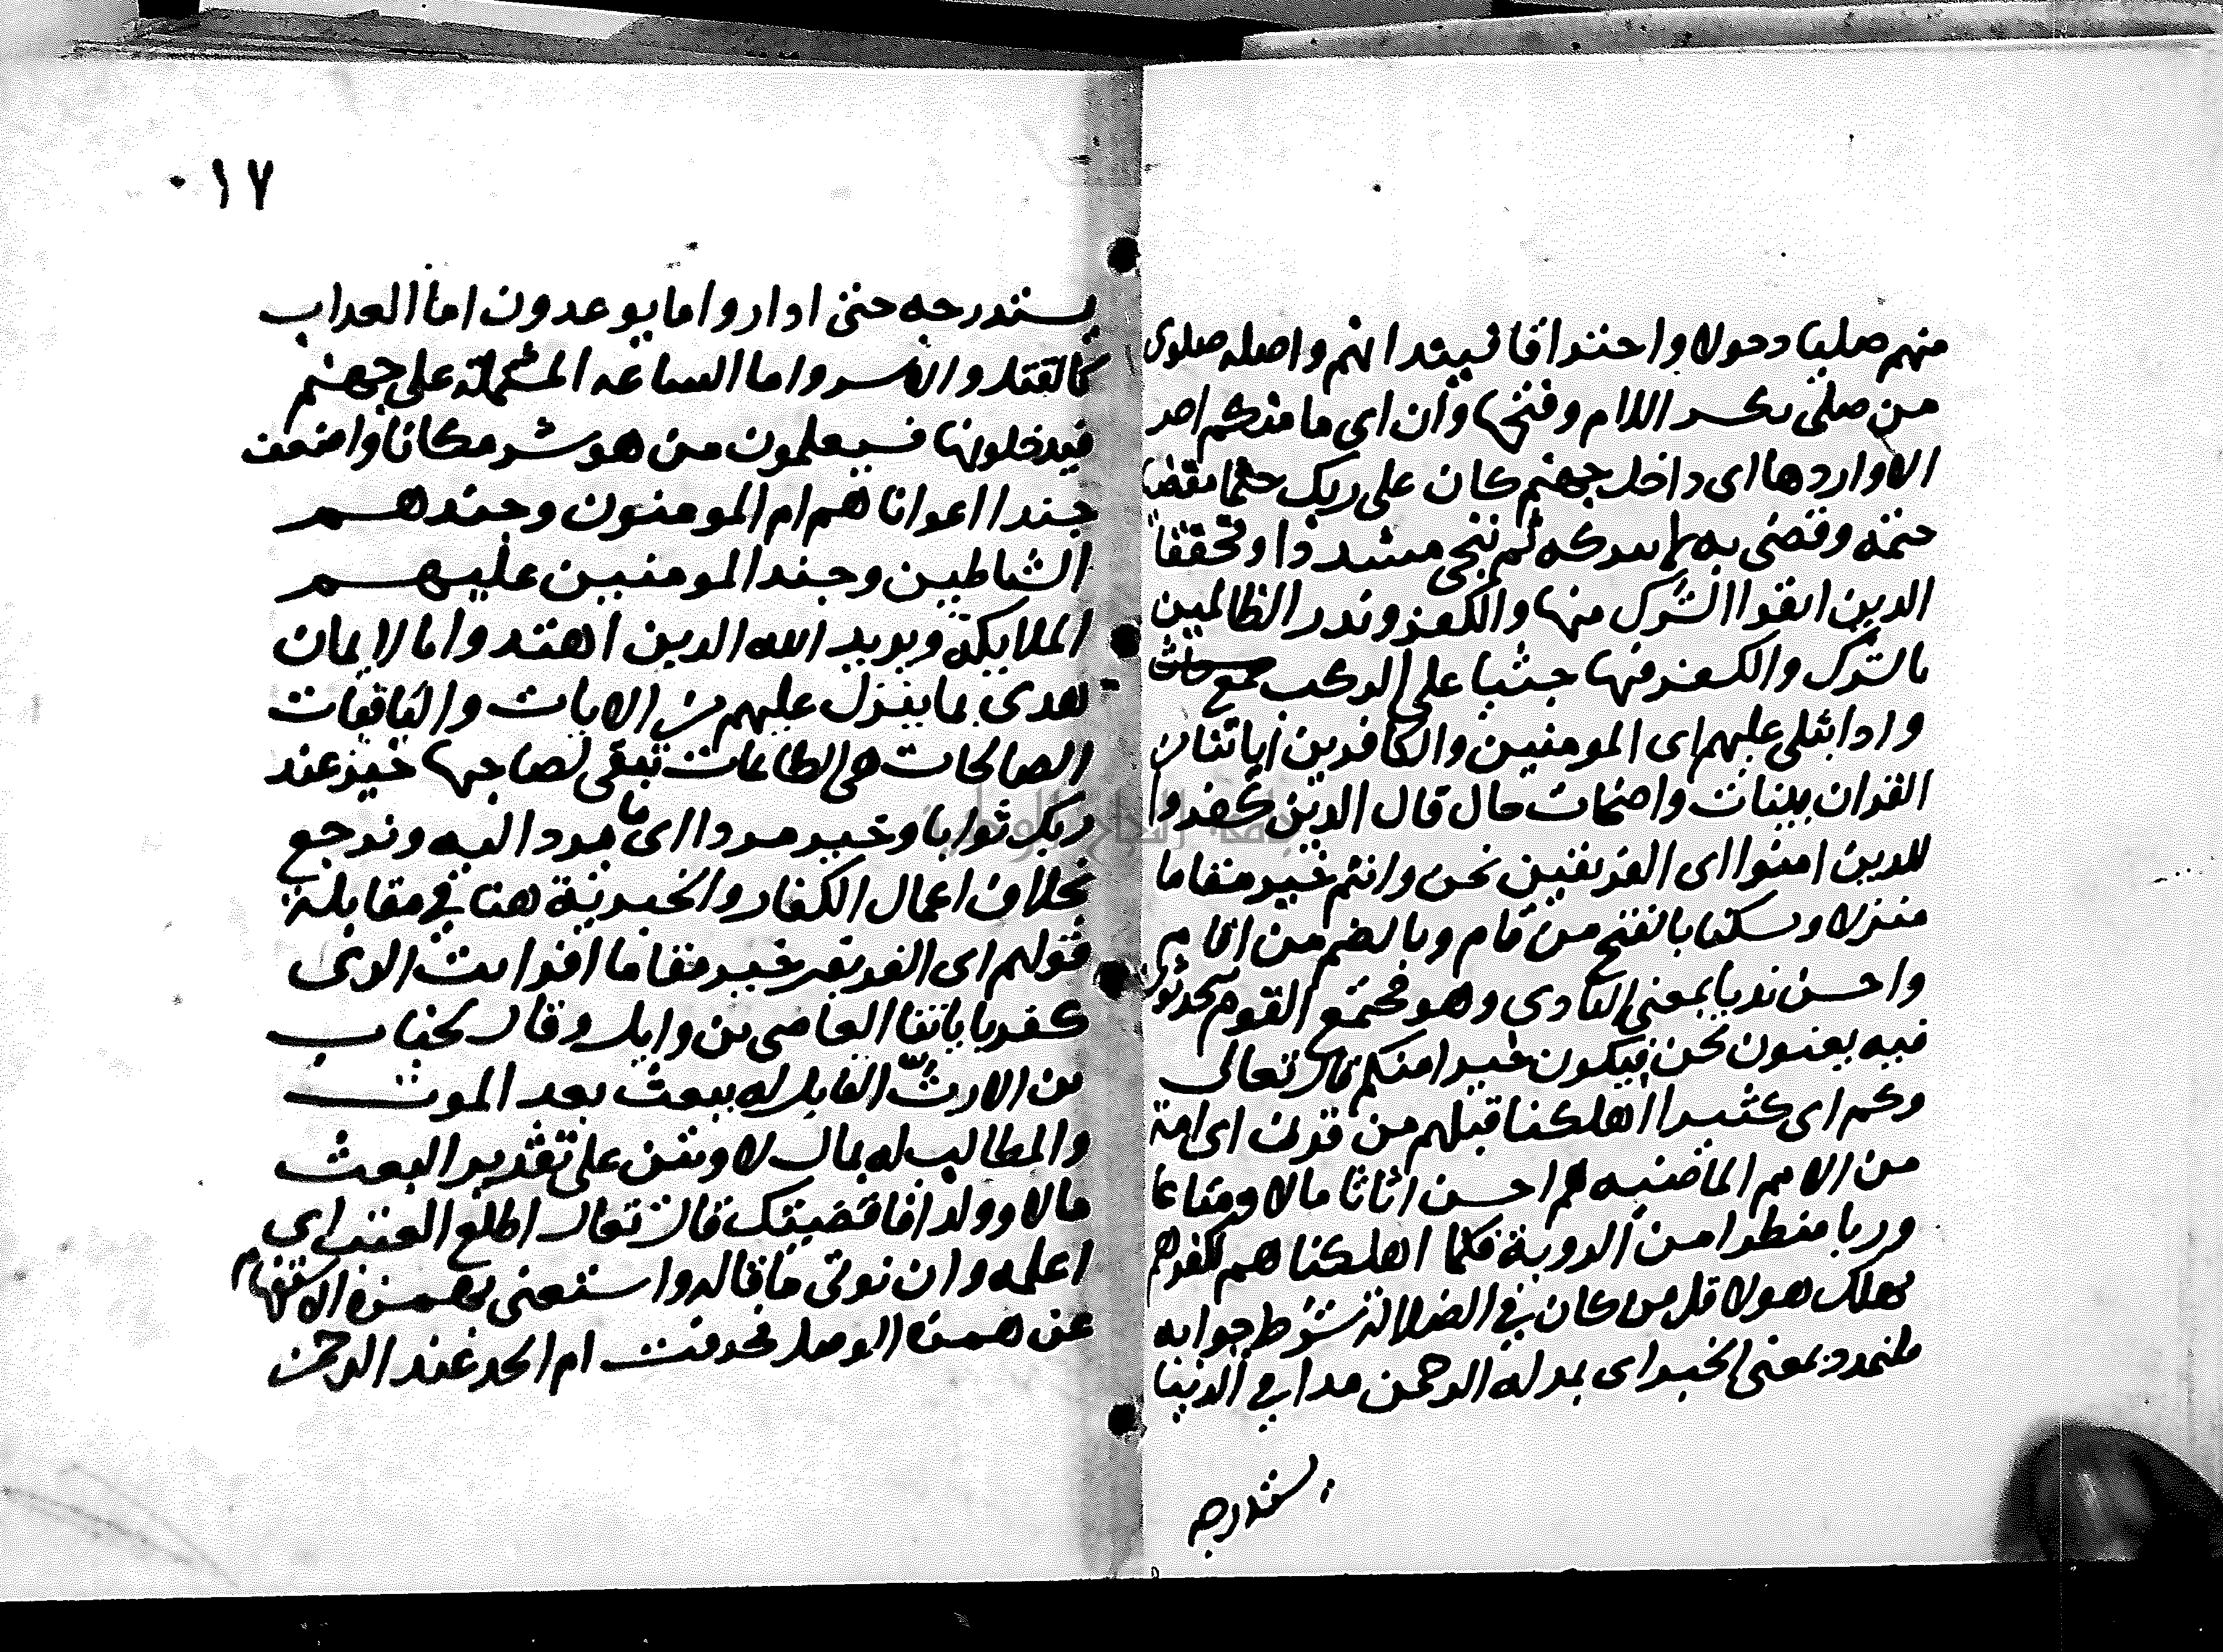 منهم صليا دحولا واحتراقا فيبتدا نهم واصله صلوى
من صلى بكسر اللام وفتحها وان اى ما منكم احد
الا واردها اى داخل جهنم كان على ربك حتما مقضيا
حتمه وقضى به لا يتركه ثم ننجى مشددا ومحققا
الدين اتقوا الشرك منها والكفر وندر الظالمين
بالشرك والكفر فيها جثيا على الركب جمع جاث
وادا تتلى عليهم اى المومنين والكافرين اياتنا من
القران بينات واضحات حال قال الدين كفروا
للدين امنوا اى الفريقين نحن وانتم خير مقاما
منزلا ومسكنا بالفتح من قام وبالضم من اقام
واحسن نديا بمعنى النادى وهو مجتمع القوم يتحدثون
فيه يعنون نحن فيكون خيرا منكم قال تعالى
وكم اى كثيرا اهلكنا قبلهم من قرن اى امة
من الامم الماضيه هم احسن اثاثا مالا ومتاعا
وريا منظرا من الروية فكما اهلكناهم لكفرهم
نهلك هولا قل من كان فى الضلالة شرط جوابه
فليمدد بمعنى الخبر اى يمد له الرحمن مدا فى الدنيا
يستدرجه
٠١٧
يستدرجه حتى ادا راوا ما يوعدون اما العداب
كالقتل والاسر واما الساعه المشتملة على جهنم
فيدخلونها فسيعلمون من هو شر مكانا واضعف
جندا اعوانا هم ام المومنون وجندهم
الشياطين وجند المومنين عليهم
الملايكة ويريد الله الدين اهتدوا بالايمان
هدى بما ينزل عليهم من الايات والباقيات
الصالحات هى الطاعات تبقى لصاحبها خير عند
ربك ثوابا وخير مردا اى ما يرد اليه ونرجع
بخلاف اعمال الكفار والخيرية هنا فى مقابلة
قولهم اى الفريقين خير مقاما افرايت الدى
كفر باياتنا العاصى بن وايل وقال لخباب
بن الارتّ القايل له يبعث بعد الموت
والمطالب له بمال لاوتين على تقدير البعث
مالا وولدا فاقضيتك قال تعالى اطلع الغيب اى
اعلمه وان نوتى ما قاله واستغنى بهمزة الاستفهام
عن همزة الوصل فحدفت ام اتخد عند الرحمن